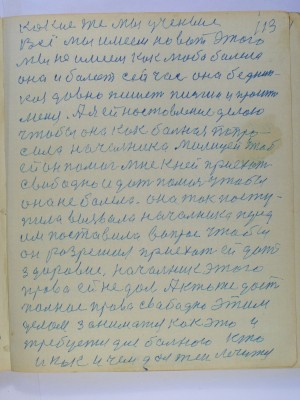 какие же мы ученые 113
Всё мы имеем но вот этого
мы не имеем как люба болела
она и болеет сей час она бедняж-
кая давно пишет письмо и просит
меня. А я ей поставление делаю
чтобы она как болная попро-
сила началника милиций чтоб
ей он помог мне к ней приехат
свободно и дат помоч чтобы
она не болела. она так посту-
пила вызвала началника перед
им поставила вопрос чтобы
он разрешил приехат ей дат
здоровие, началник этого
права ей не дал А кто же даст
полное право свабадно этим
делом заниматся как это и
требуется для болного кто
и как и чем должен лечится